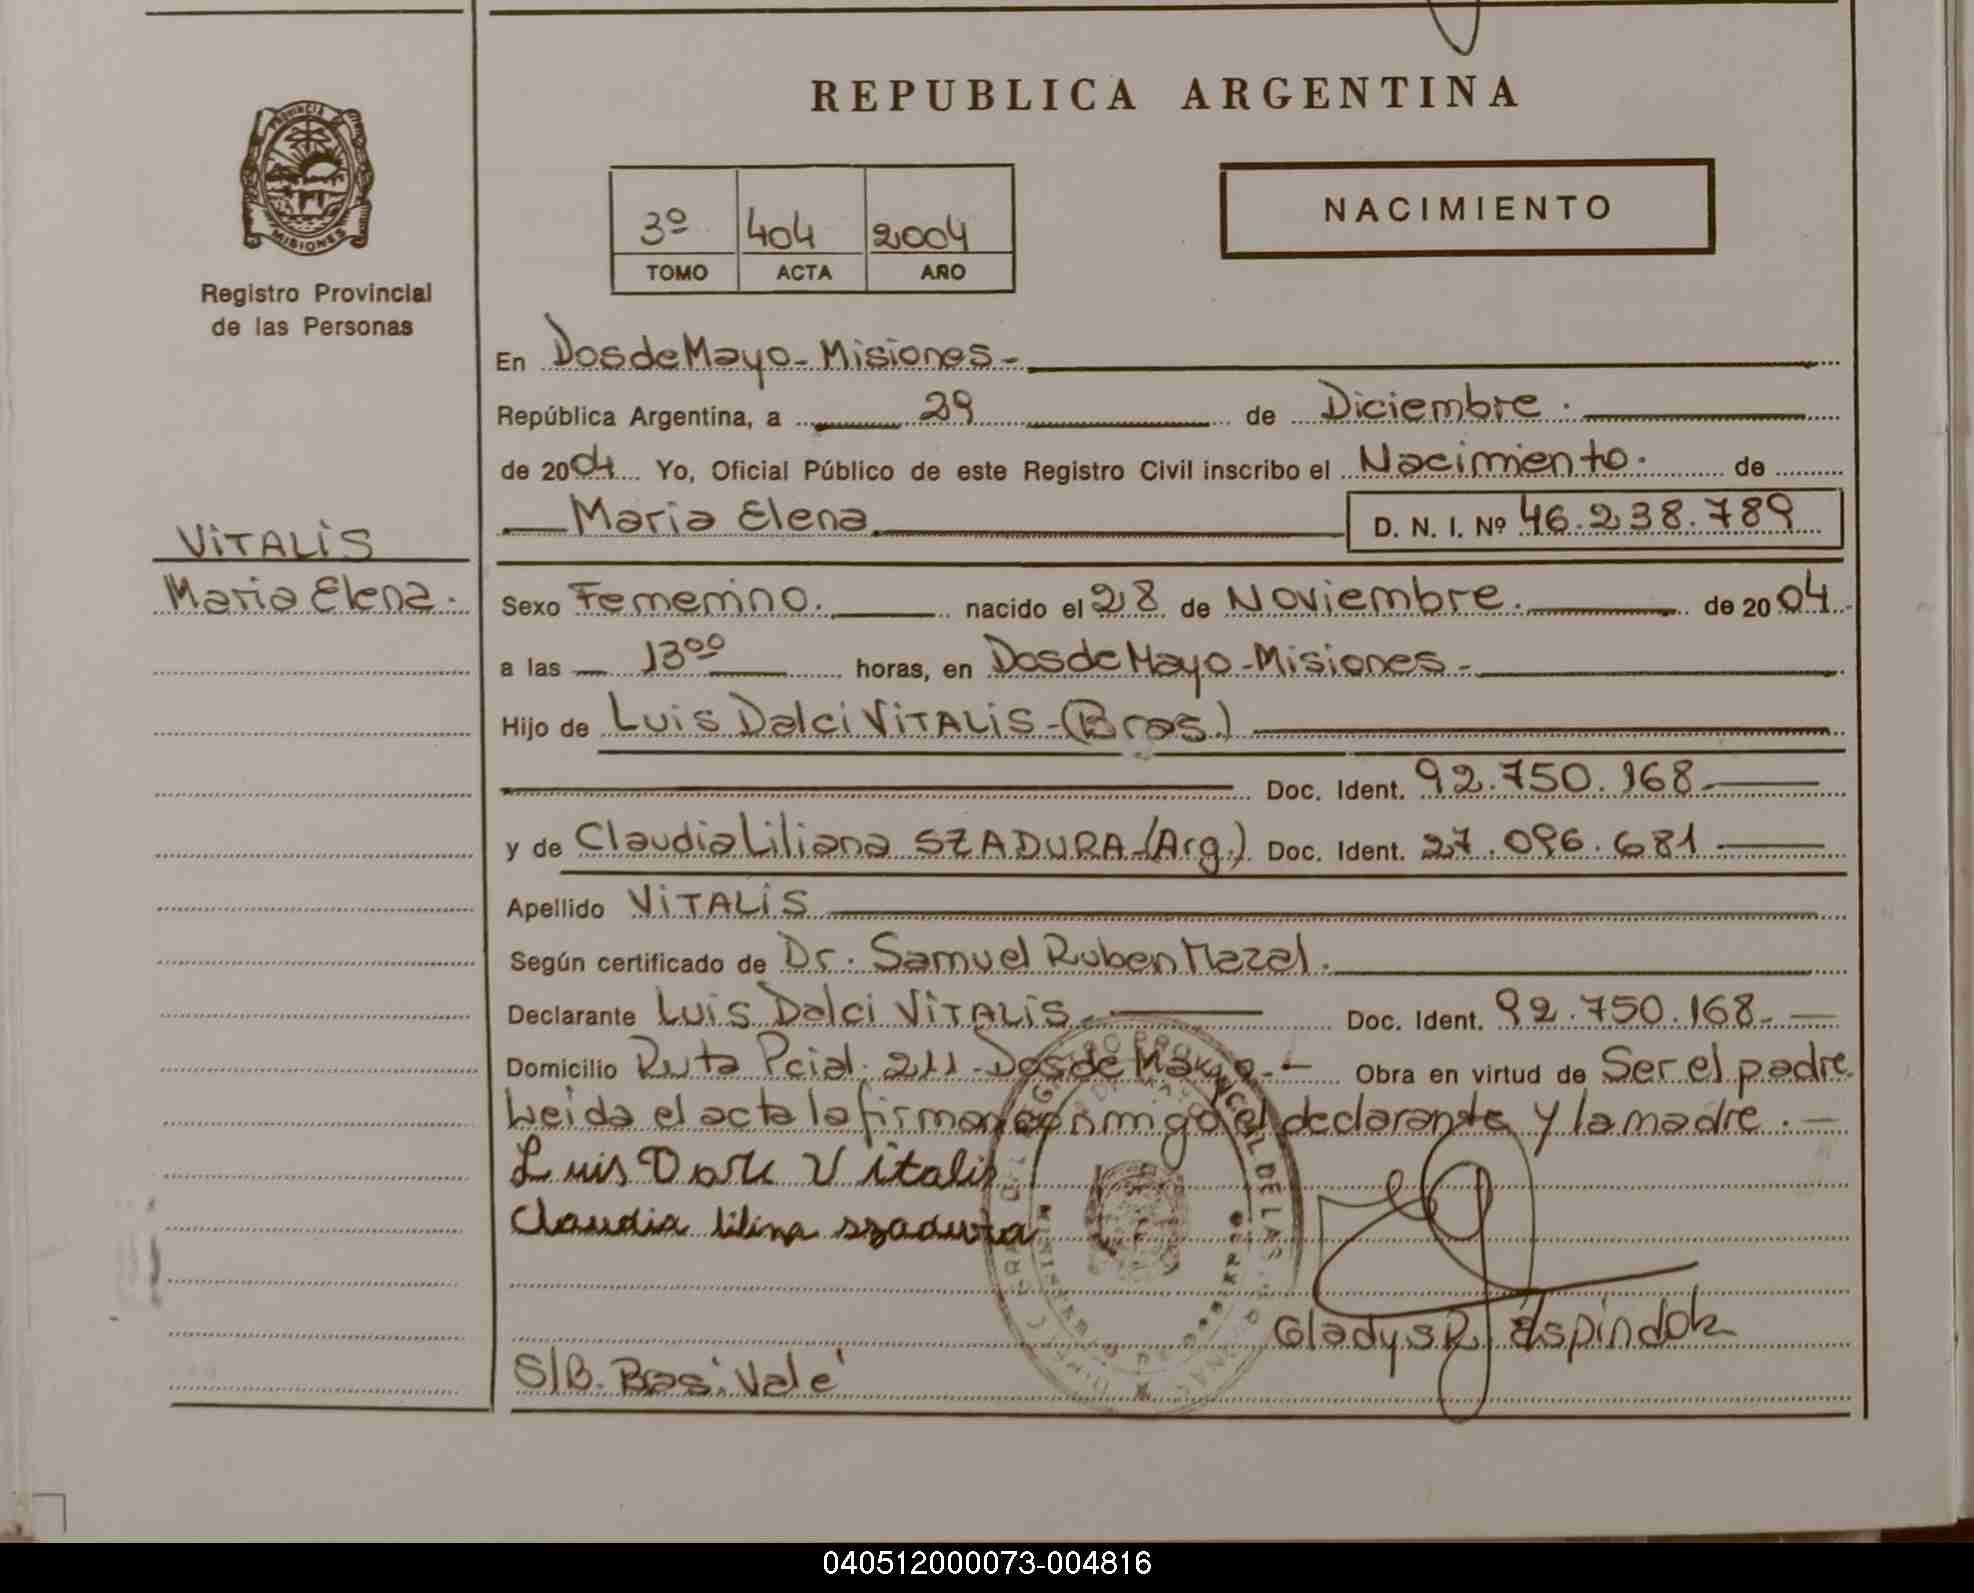 REPUBLICA ARGENTINA
PROVINCIA DE
MISIONES
Registro Provincial
de las Personas
3º 404 2004
TOMO ACTA AÑO
NACIMIENTO
En Dos de Mayo - Misiones -
República Argentina, a 29 de Diciembre.
de 2004 Yo, Oficial Público de este Registro Civil inscribo el Nacimiento. de
Maria Elena D. N. I. Nº 46.238.789
VITALIS
Maria Elena.
Sexo Femenino. nacido el 28 de Noviembre. de 2004
a las 13ºº horas, en Dos de Mayo - Misiones -
Hijo de Luis Dalci VITALIS - (Bras.)
Doc. Ident. 92.750.168
y de Claudia Liliana SZADURA - (Arg.) Doc. Ident. 27.096.681
Apellido VITALIS
Según certificado de Dr. Samuel Ruben Mazal.
Declarante Luis Dalci VITALIS - Doc. Ident. 92.750.168 -
Domicilio Ruta Pcial. 211 - Dos de Mayo - Obra en virtud de Ser el padre.
Leida el acta la firman conmigo el declarante y la madre. -
Luis Vitalis
Claudia lilina szadura
Gladys R. Espindola
S/B. Vale
040512000073-004816